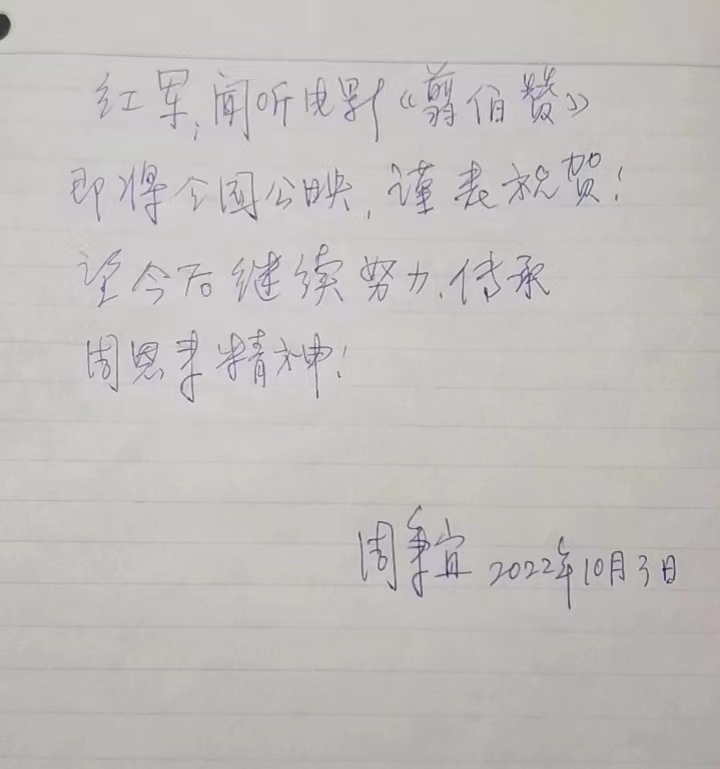 红军,闻听电影《翦伯赞》
即将全国公映,谨表祝贺!
望今后继续努力、传承
周恩来精神!
周秉宜 2022年10月3日